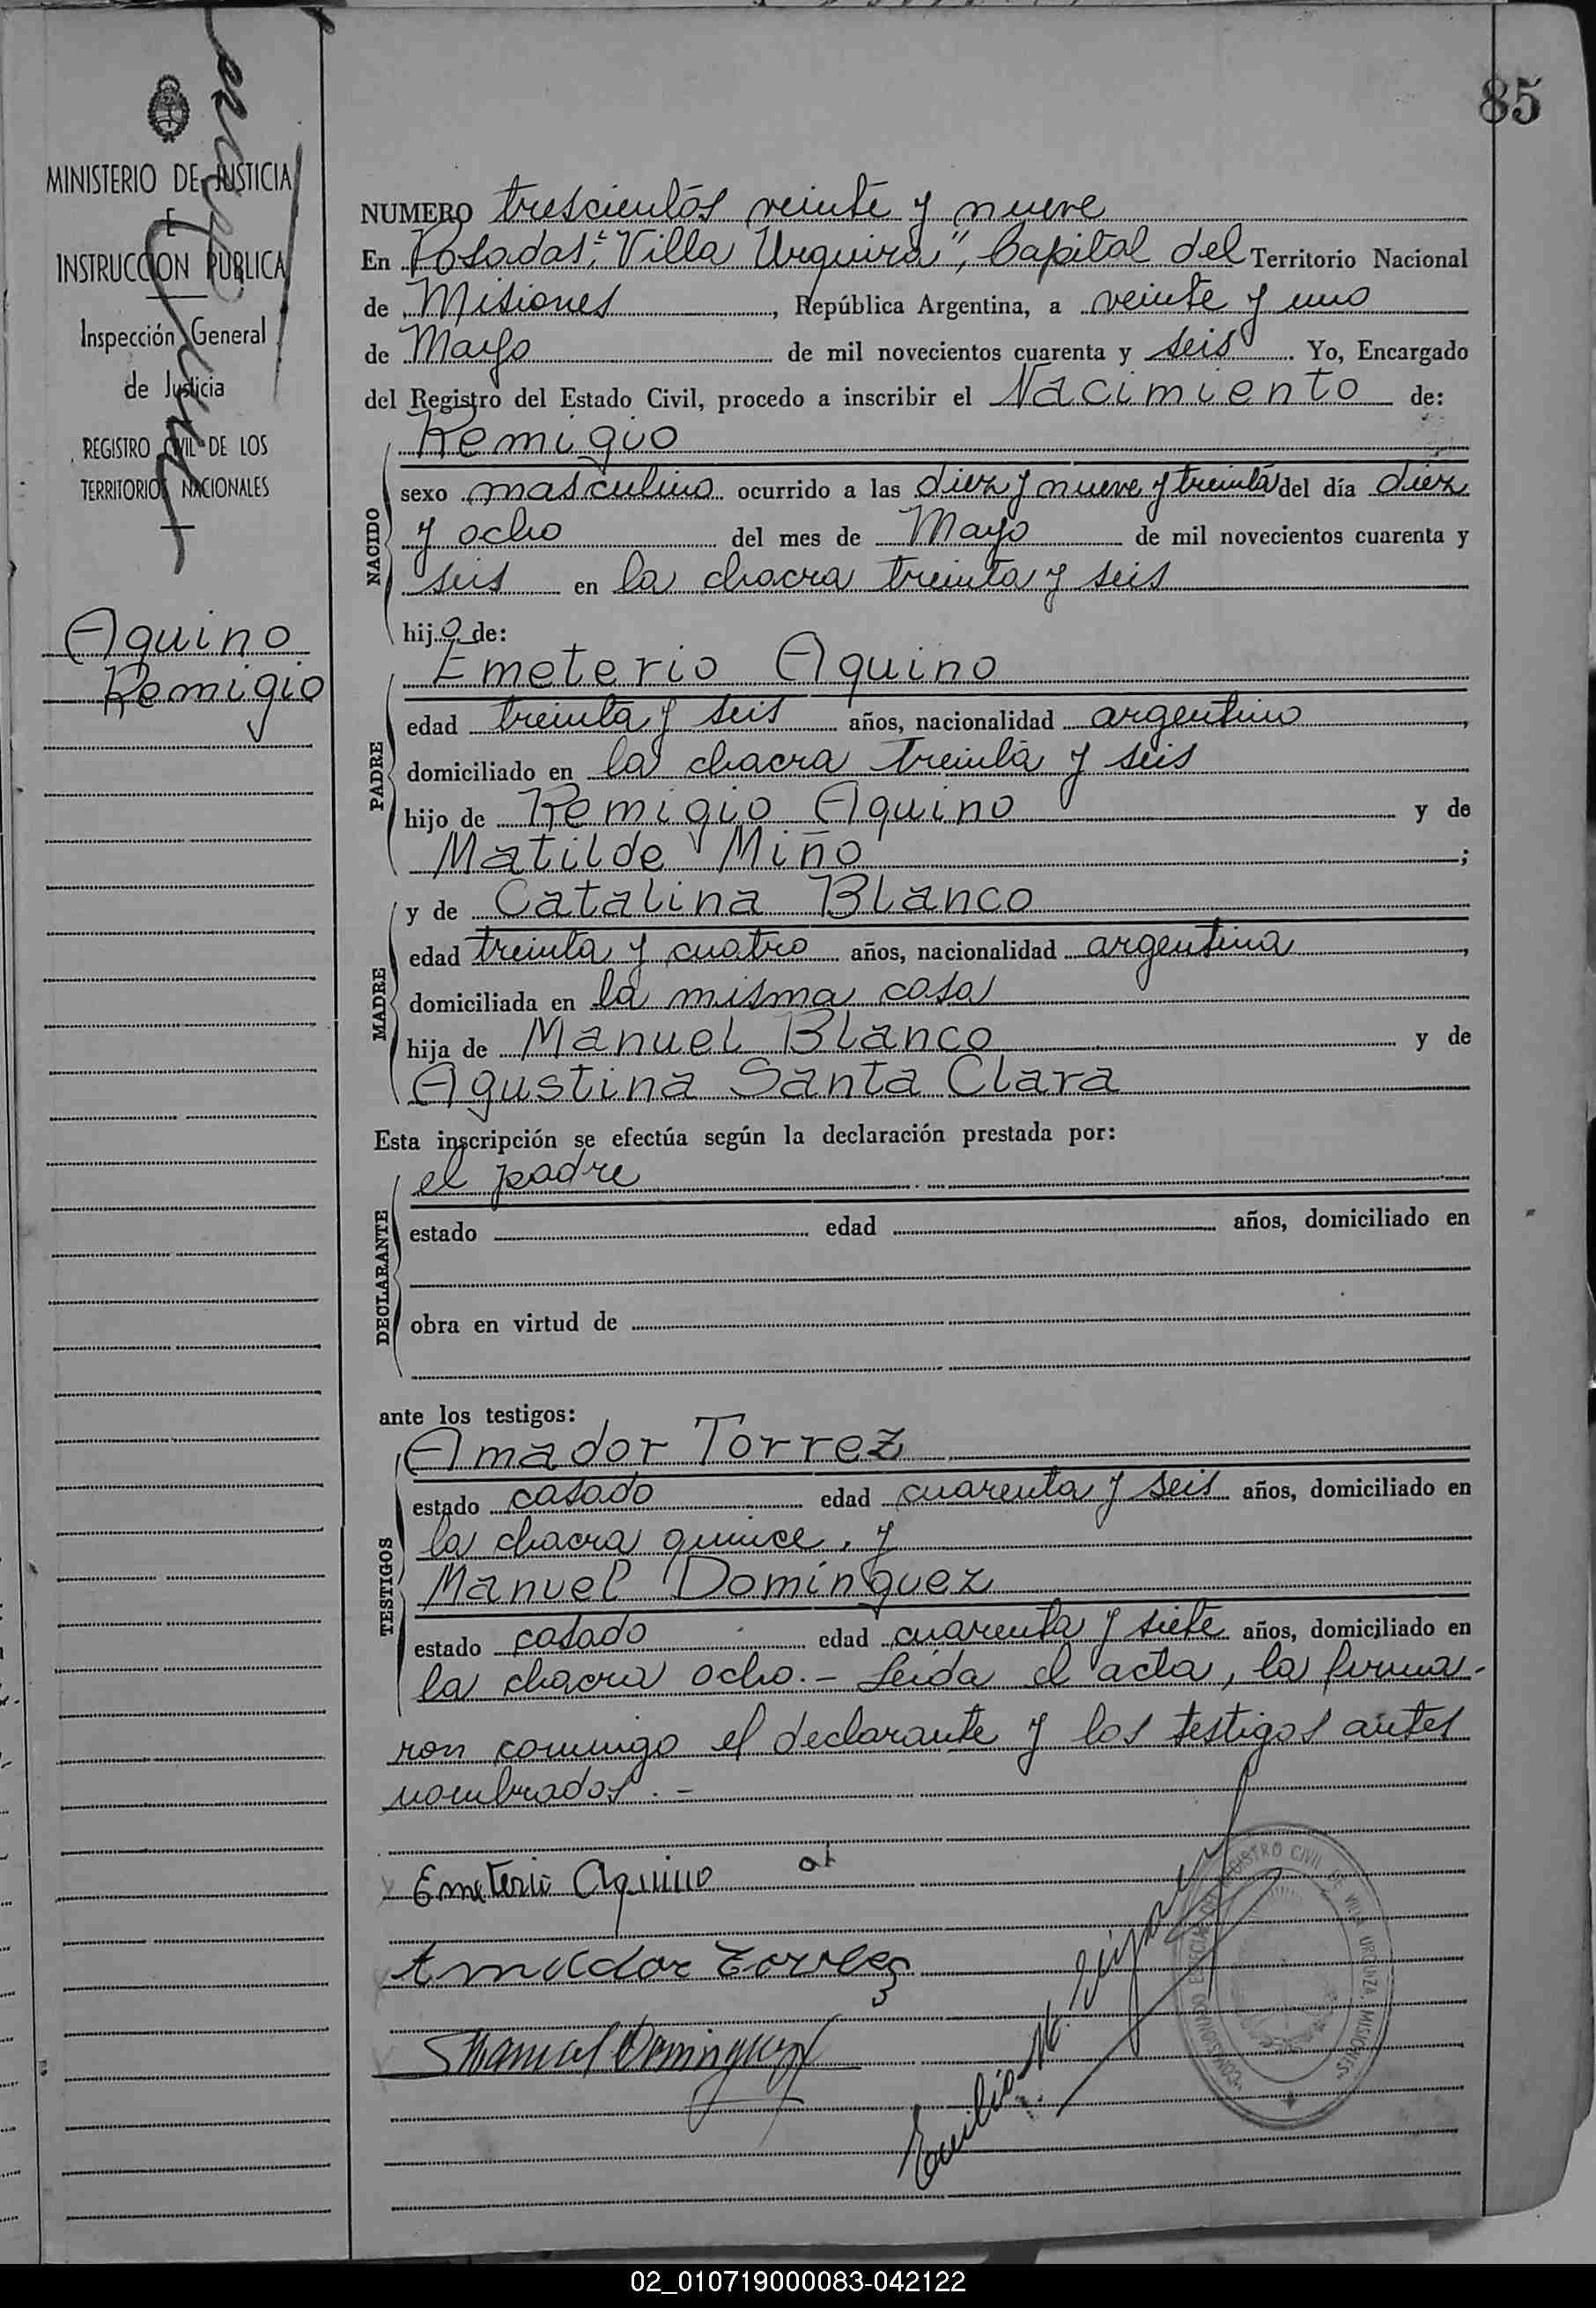 85
MINISTERIO DE JUSTICIA
E
INSTRUCCION PUBLICA
Inspección General
de Justicia
REGISTRO CIVIL DE LOS
TERRITORIOS NACIONALES
Aquino
Remigio
NUMERO trescientos veinte y nueve
En Posadas "Villa Urquiza", Capital del Territorio Nacional
de Misiones, República Argentina, a veinte y uno
de Mayo de mil novecientos cuarenta y seis. Yo, Encargado
del Registro del Estado Civil, procedo a inscribir el Nacimiento de:
Remigio
NACIDO
sexo masculino ocurrido a las diez y nueve y treinta del día diez
y ocho del mes de Mayo de mil novecientos cuarenta y
seis en la chacra treinta y seis
hijo de:
Emeterio Aquino
PADRE
edad treinta y seis años, nacionalidad argentino,
domiciliado en la chacra treinta y seis
hijo de Remigio Aquino y de
Matilde Miño;
y de Catalina Blanco
MADRE
edad treinta y cuatro años, nacionalidad argentina,
domiciliada en la misma casa
hija de Manuel Blanco y de
Agustina Santa Clara
Esta inscripción se efectúa según la declaración prestada por:
el padre
DECLARANTE
estado edad años, domiciliado en
obra en virtud de
ante los testigos:
Amador Torrez
TESTIGOS
estado casado edad cuarenta y seis años, domiciliado en
la chacra quince, y
Manuel Domínguez
estado casado edad cuarenta y siete años, domiciliado en
la chacra ocho.- Leída el acta, la firma-
ron conmigo el declarante y los testigos antes
nombrados.-
Emeterio Aquino
Amador Torrez
Manuel Dominguez
Emilio M.
REGISTRO CIVIL DE VILLA URQUIZA. MISIONES
02_010719000083-042122